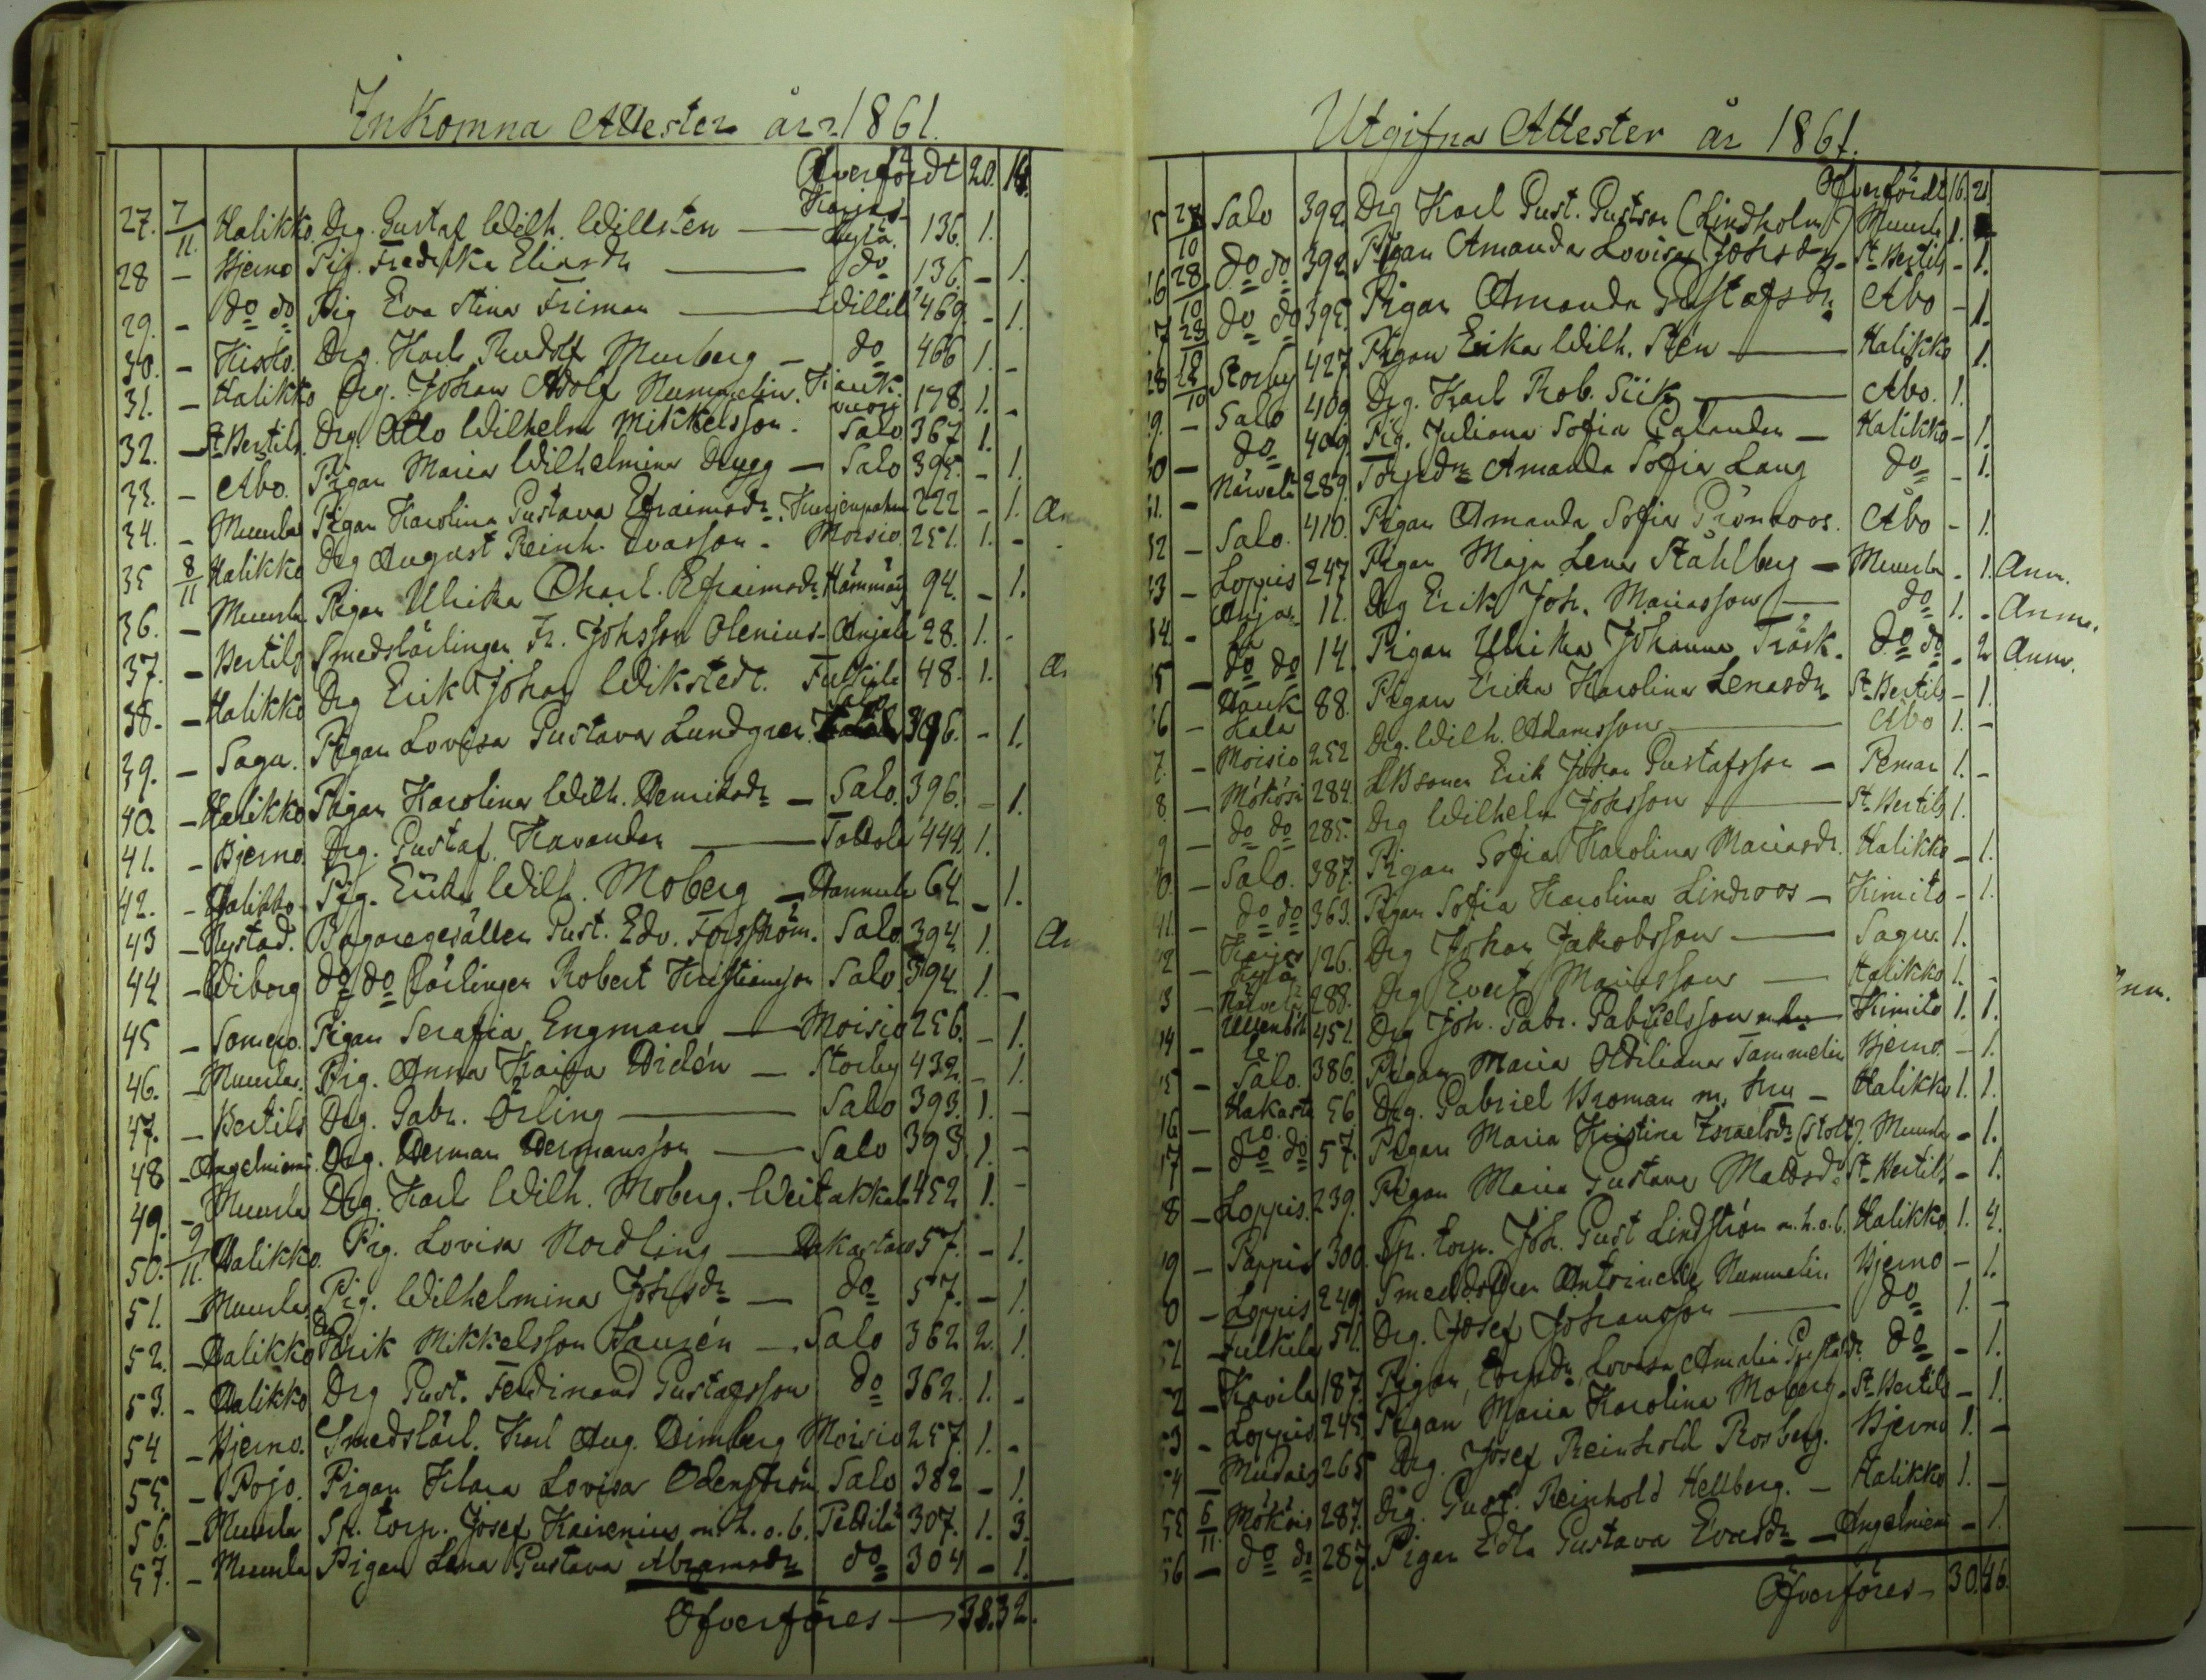 Inkomna Attester år 1861.
Öfverfördt 20. 14.
27. 7/11. Halikko. Drg. Gustaf Wilh. Willsten — Karjaskylä. 136. 1.
28 — Bjerno Pig. Fredrika Eliasdr — do 136. — 1.
29. — do do Pig Eva Stina Friman — 469. — 1.
30. — Kisko. Drg. Karl Rudolf Murberg — do 466 1. —
31. — Halikko Drg. Johan Adolf Nummelin. 178. 1. —
32. — St Bertils. Drg. Otto Wilhelm Mikkelsson. Salo 367 1.
33. — Abo. Pigan Maria Wilhelmina Drygg — Salo 395. — 1.
34. — Muurla Pigan Karolina Gustava Efraimsdr. Kurjenpahna 222 — 1.
35 8/11 Halikko Drg August Reinh. Evasson. Moisio. 251. 1. —
36. — Muurla Pigan Ulrika Charl. Efraimsdr 94. — 1.
37. — Bertils Smedslärlingen Fr. Johsson Olenius — Anjala 28. 1. —
38. — Halikko Drg Erik Johan Wikstedt. Fulkila 48. 1.
39. — Sagu. Pigan Lovisa Gustava Lundgren Salo 396. — 1.
40. — Halikko Pigan Karolina Wilh. Henriksdr — Salo. 396. — 1.
41. — Bjerno. Drg. Gustaf Kavander — Tottola 444. 1.
42. — Halikko. Pig. Erika Wilh. Moberg — Hannula 64 — 1.
43 — Nystad. Bagaregesällen Gust. Edv. Forsström. Salo. 394 1.
44 — Wiborg do do lärlingen Robert Kristiansson Salo. 394. 1. —
45 — Somero. Pigan Serafia Engman — Moisio 256. — 1.
46. — Muurla. Pig. Anna Kaisa Widén — Storby 432. — 1.
47. — Bertils Drg. Gabr. Örling — Salo 393. 1. —
48 — Angelniemi. Drg. Herman Hermansson — Salo 393. 1. —
49. — Muurla Drg. Karl Wilh. Moberg. Weitakkala 452 1. —
50. 9/11. Halikko. Pig. Lovisa Nordling — Hakastaro 57. — 1.
51. — Muurla. Pig. Wilhelmina Johsdr — do 57. — 1.
52. — Halikko Drg Erik Mikkelsson Saurén — Salo 362 2. 1.
53. — Halikko Drg Gust. Ferdinand Gustafsson do 362. 1. —
54 — Bjerno. Smedslärl. Karl Aug. Dimberg Moisio 257. 1. —
55. — Pojo. Pigan Klara Lovisa Odenström Salo 382 — 1.
56. — Muurla Sp. torp. Josef Kairenius m. h. o. b. Pettilä 307. 1. 3.
57. — Muurla Pigan Lena Gustava Abramsdr do 304 — 1.
Öfverföres — 38. 32.
Utgifna Attester år 1861.
Öfverfördt 16. 21.
5 28/10 Salo 392. Drg Karl Gust. Gustson (Lindholm) Muurla 1.
6 28/10 do do 392. Pigan Amanda Lovisa Johsdr — St Bertils — 1.
7 28/10 do do 395. Pigan Amanda Gustafsdr Abo — 1.
28 28/10 Storby 427. Pigan Erika Wilh. Sten — Halikko 1.
9. — Salo 409. Drg. Karl Rob. Siik — Abo. 1.
30 — do 409. Pig. Juliana Sofia Calander — Halikko — 1.
31. — Närvelä 289. Torpdr Amanda Sofia Lang do — 1.
32 — Salo. 410. Pigan Amanda Sofia Grönroos. Åbo — 1.
33 — Loppis 247 Pigan Maja Lena Ståhlberg — Muurla — 1. Anm.
34. — Anjala 11. Drg Erik Joh. Mariasson — do 1. — Anm.
35 — do do 14. Pigan Ulrika Johanna Träsk. do do — 2 Anm.
36 — 88. Pigan Erika Karolina Lenasdr St Bertils — 1.
7. — Moisio 252 Drg. Wilh. Adamsson — Åbo 1. —
8. — Mökösi 284. Erik Johan Gustafsson — Pemar 1. —
9 — do do 285. Drg Wilhelm Johsson — St Bertils 1.
0. — Salo. 387. Pigan Sofia Karolina Mariasdr. Halikko — 1.
41. — do do 363. Pigan Sofia Karolina Lindroos — Kimito — 1.
42 — Karjaskylä 126. Drg Johan Jakobsson — Sagu. 1.
3 — Närvelä 288. Drg Evert Mariasson — Halikko 1. —
44 — 451. Drg Joh. Gabr. Gabrielsson m. hu Kimito 1. 1.
45 — Salo. 386. Pigan Maria Ottiliana Tammelin Bjerno. — 1.
46 — Hakastaro 56 Drg. Gabriel Broman m. hu — Halikko 1. 1.
47 — do do 57. Pigan Maria Kristina Israelsdr (Stolt). Muurla — 1.
48 — Loppis. 239. Pigan Maria Gustava Mattsdr St Bertils — 1.
49 — Pappis 300. Sp. torp. Joh. Gust Lindström m. h. o. b. Halikko. 1. 4.
0 — Loppis 249. Smedsdottren Antoinette Nummelin Bjerno — 1.
51 — Fulkila 51. Drg. Josef Johansson — do 1. —
52 — Kavila 187. Pigan, torpdr Lovisa Amalia Gustafsdr. do — 1.
53 — Loppis 245. Pigan Maria Karolina Moberg. St Bertils — 1.
54 — 265 Drg. Josef Reinhold Rosberg. Bjerno 1. —
55 6/11. Mökösi 287. Drg. Gust. Reinhold Hellberg. — Halikko 1. —
56 — do do 287. Pigan Edla Gustava Evasdr — Angelniemi — 1
Öfverföres — 30. 46.